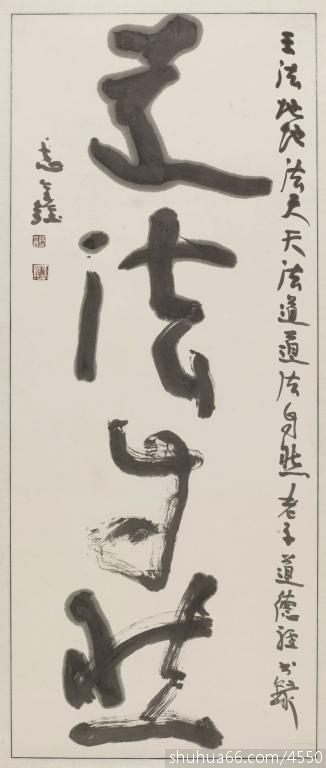 王法地地法天天法道道法自然老子道德经书录
道法自然
shuhua66.com/4550